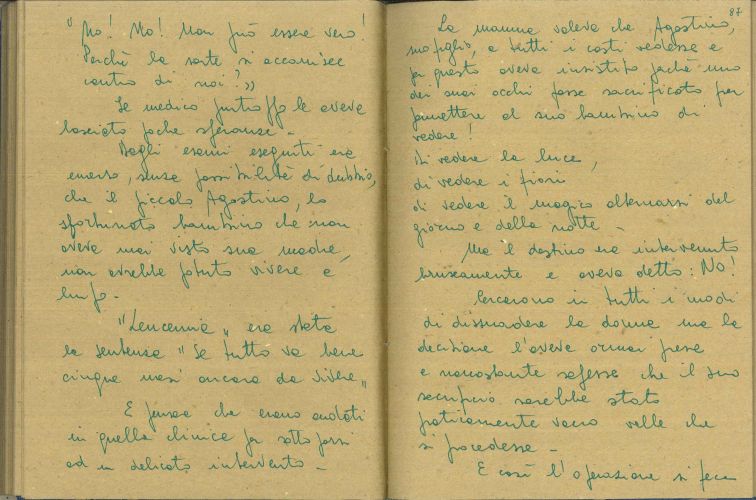 "No! No! Non può essere vero!
Perché la sorte si accanisce
contro di noi?"
Il medico purtroppo le aveva
lasciato poche speranze -
Dagli esami eseguiti era
emerso, senza possibilità di dubbio,
che il piccolo Agostino, lo
sfortunato bambino che non
aveva mai visto sua madre,
non avrebbe potuto vivere a
lungo -
"Leucemia" era stata
la sentenza "Se tutto va bene
cinque mesi ancora da vivere"
E pensare che erano andati
in quella clinica per sottoporsi
ad un delicato intervento -
87
La mamma voleva che Agostino,
suo figlio, a tutti i costi vedesse e
per questo aveva insistito perché uno
dei suoi occhi fosse sacrificato per
permettere al suo bambino di
vedere!
Di vedere la luce,
di vedere i fiori
di vedere il magico alternarsi del
giorno e della notte -
Ma il destino era intervenuto
bruscamente e aveva detto: No!
Cercarono in tutti i modi
di dissuadere la donna ma la
decisione l'aveva ormai presa
e nonostante sapesse che il suo
sacrificio sarebbe stato
praticamente vano volle che
si procedesse -
E così l'operazione si fece